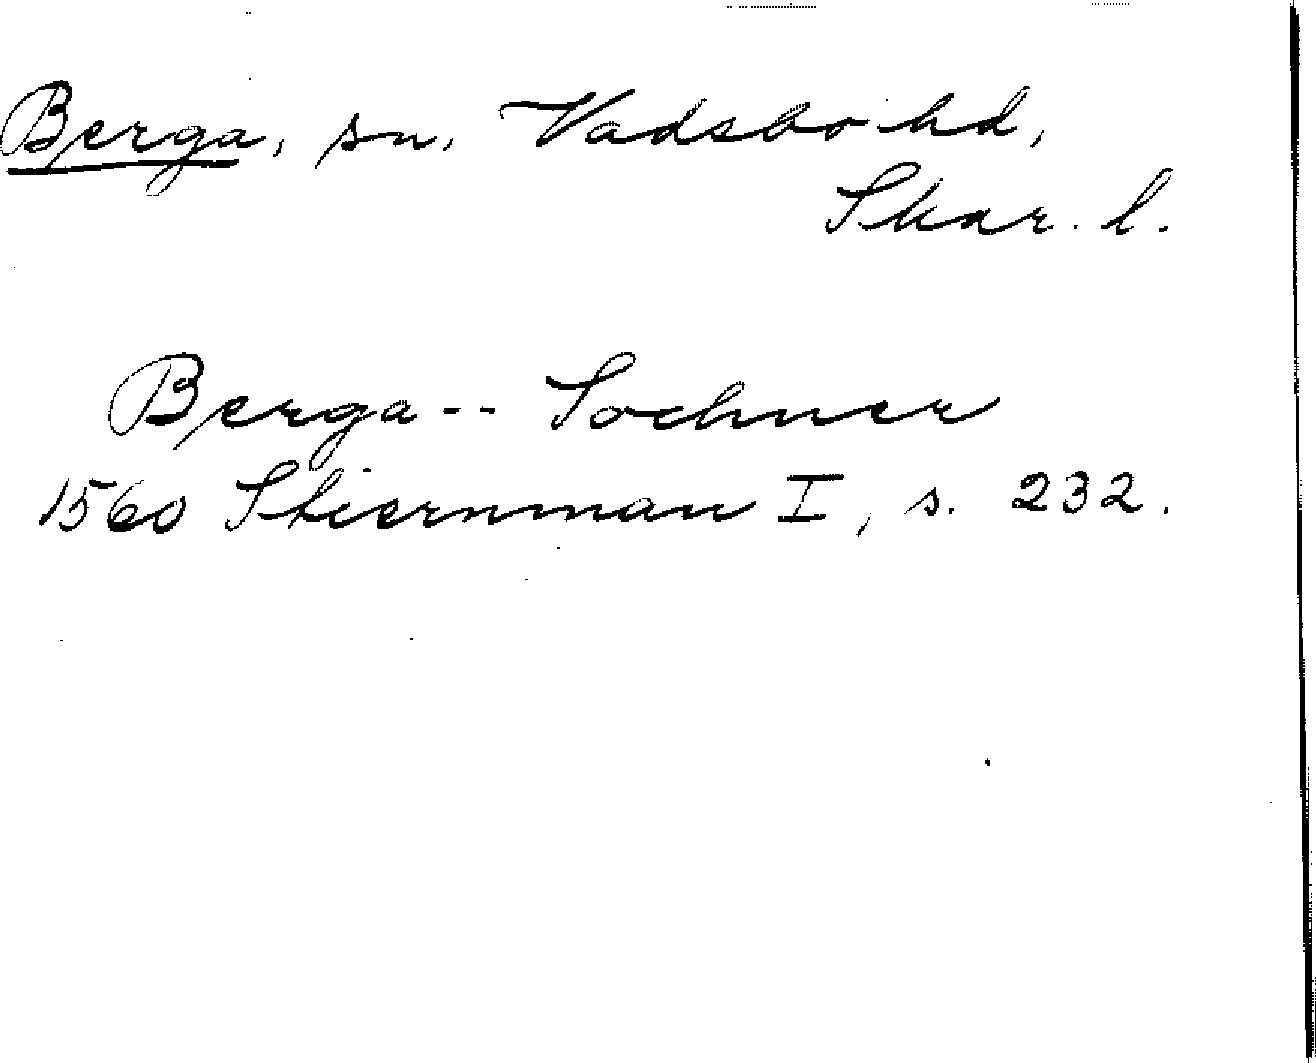 Berga, sn. Vadsbo hd,
Skar. l.
Berga -- Sochner
1560 Stiernman I, s. 232.